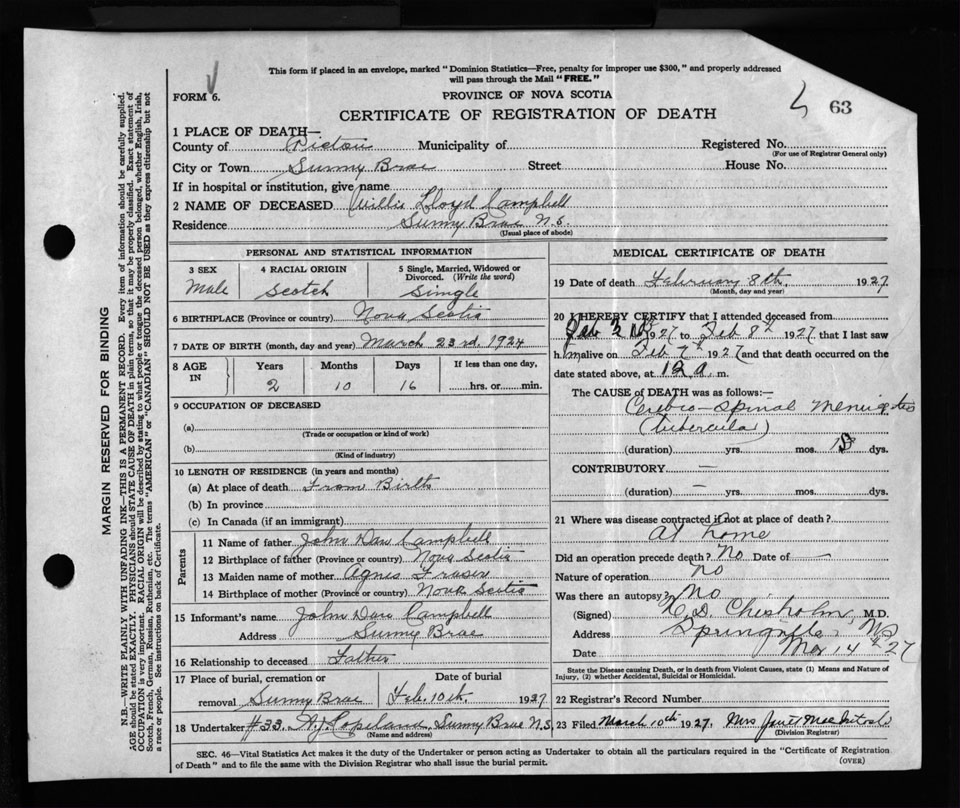 This form if placed in an envelope, marked "Dominion Statistics—Free, penalty for improper use $300," and properly addressed
will pass through the Mail "FREE."
FORM 6.
PROVINCE OF NOVA SCOTIA
63
CERTIFICATE OF REGISTRATION OF DEATH
1 PLACE OF DEATH—
County of Pictou Municipality of Registered No.
(For use of Registrar General only)
City or Town Sunny Brae Street House No.
If in hospital or institution, give name
2 NAME OF DECEASED Willis Lloyd Campbell
Residence Sunny Brae N.S.
(Usual place of abode)
PERSONAL AND STATISTICAL INFORMATION
3 SEX 4 RACIAL ORIGIN 5 Single, Married, Widowed or
Divorced. (Write the word)
Male Scotch Single
6 BIRTHPLACE (Province or country) Nova Scotia
7 DATE OF BIRTH (month, day and year) March 23rd. 1924
8 AGE IN Years Months Days If less than one day,
2 10 16 hrs. or min.
9 OCCUPATION OF DECEASED
(a)
(Trade or occupation or kind of work)
(b)
(Kind of industry)
10 LENGTH OF RESIDENCE (in years and months)
(a) At place of death From Birth
(b) In province
(c) In Canada (if an immigrant)
Parents
11 Name of father John Dan Campbell
12 Birthplace of father (Province or country) Nova Scotia
13 Maiden name of mother Agnes Fraser
14 Birthplace of mother (Province or country) Nova Scotia
15 Informant's name John Dan Campbell
Address Sunny Brae
16 Relationship to deceased Father
17 Place of burial, cremation or Date of burial
removal Sunny Brae Feb. 10th. 1927
18 Undertaker #33. A.J. Copeland Sunny Brae N.S.
(Name and address)
MEDICAL CERTIFICATE OF DEATH
19 Date of death February 8th. 1927
(Month, day and year)
20 I HEREBY CERTIFY that I attended deceased from
2 1927 to Feb 8th 1927 that I last saw
him alive on Feb 7th 1927 and that death occurred on the
date stated above, at 12 a. m.
The CAUSE of DEATH was as follows:—
Cerebro-Spinal Meningitis
(tubercular)
(duration) yrs. mos. dys.
CONTRIBUTORY —
(duration) — yrs. mos. dys.
21 Where was disease contracted if not at place of death?
At home
Did an operation precede death? No Date of —
Nature of operation no
Was there an autopsy? No
(Signed) Chisholm, M.D.
Address Springville, NS
Date Mar 14th 27
State the Disease causing Death, or in death from Violent Causes, state (1) Means and Nature of
Injury, (2) whether Accidental, Suicidal or Homicidal.
22 Registrar's Record Number
23 Filed March 10th 1927. Mrs Janet MacIntosh
(Division Registrar)
SEC. 46—Vital Statistics Act makes it the duty of the Undertaker or person acting as Undertaker to obtain all the particulars required in the "Certificate of Registration
of Death" and to file the same with the Division Registrar who shall issue the burial permit.
(OVER)
MARGIN RESERVED FOR BINDING
N.B.—WRITE PLAINLY WITH UNFADING INK—THIS IS A PERMANENT RECORD. Every item of information should be carefully supplied.
AGE should be stated EXACTLY. PHYSICIANS should STATE CAUSE OF DEATH in plain terms, so that it may be properly classified. Exact statement of
OCCUPATION is very important. RACIAL ORIGIN will be described by stating to what people or tongue the deceased person belonged, whether English, Irish,
Scotch, French, German, Russian, Ruthenian, etc. The terms "AMERICAN" or "CANADIAN" SHOULD NOT BE USED as they express citizenship but not
a race or people. See instructions on back of Certificate.